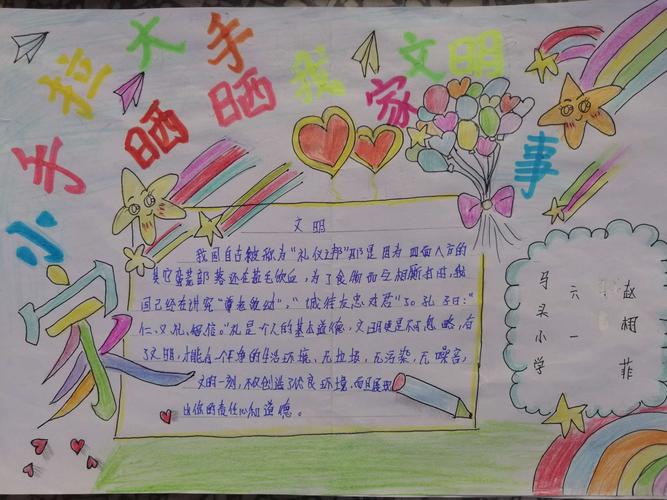 小手拉大手
晒晒我家文明事
家
文明
我国自古被称为“礼仪之邦”那是因为四面八方的
其它蛮荒部落还在茹毛饮血,为了食物而互相厮杀时,我
国已经在讲究“尊老敬幼”,“诚待友忠对君”
仁、义、礼、智、信。”礼是个人的基本道德,文明更是不可忽略,有
了文明,才能有一个干净的生活环境、无垃圾,无污染,无噪音,
文明一刻,不仅创造了优良环境,而且展现
出你的责任心和道德。
马头小学
六一
赵栩菲